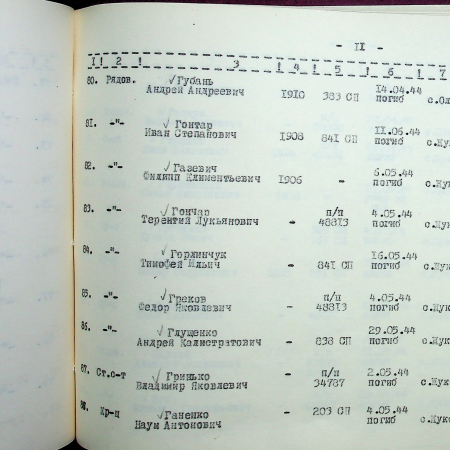 - II -
I! 2 ! 3 ! 4 ! 5 ! 6 ! 7
80. Рядов. √ Губань
Андрей Андреевич 1910 383 СП 14.04.44 погиб с.Ол
81. -"- √ Гонтар
Иван Степанович 1908 841 СП 11.06.44 погиб с.Кук
82. -"- √ Газевич
Филипп Климентьевич 1906 - 6.05.44 погиб с.Кук
83. -"- √ Гончар
Терентий Лукьянович - п/п 48813 4.05.44 погиб с.Кук
84. -"- √ Горлинчук
Тимофей Ильич - 841 СП 16.05.44 погиб с.Кук
85. -"- √ Греков
Федор Яковлевич - п/п 48813 4.05.44 погиб с.Кук
86. -"- √ Глущенко
Андрей Калистратович - 838 СП 29.05.44 погиб с.Кук
87. Ст.с-т √ Гринько
Владимир Яковлевич - п/п 34787 2.05.44 погиб с.Кук
88. Кр-ц √ Ганенко
Наум Антонович - 203 СП 4.05.44 погиб с.Кук